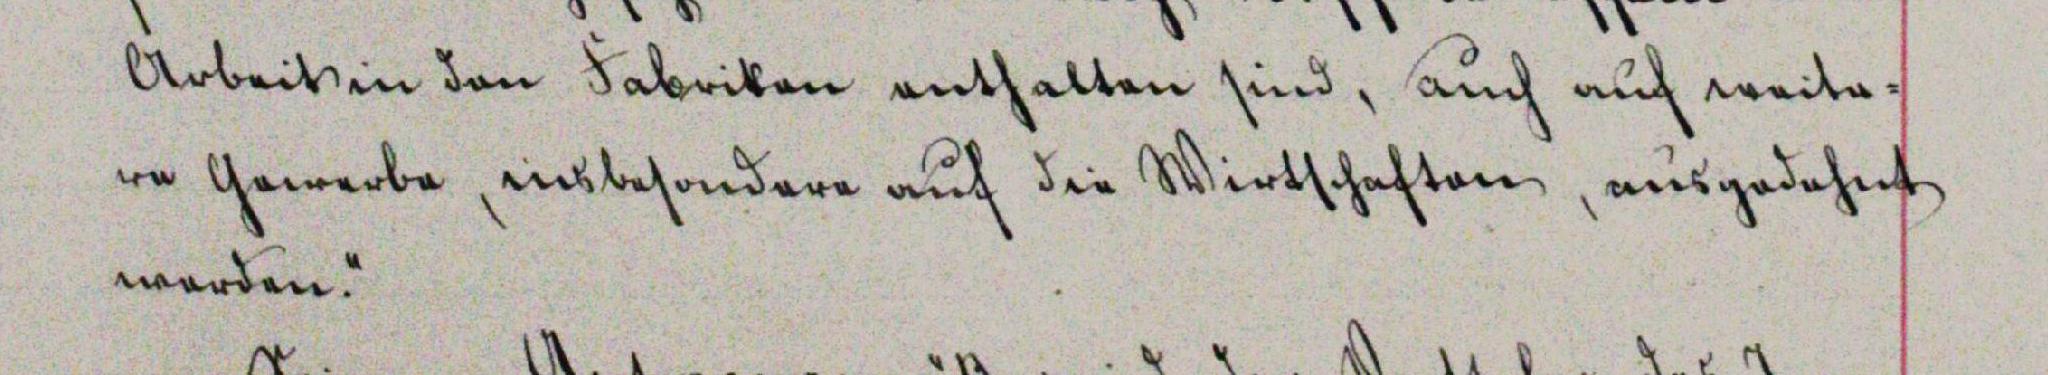 Arbeit in den Fabriken enthalten sind, auch auf weite=
re Gewerbe, insbesondere auf die Wirtschaften, ausgedehnt
werden."